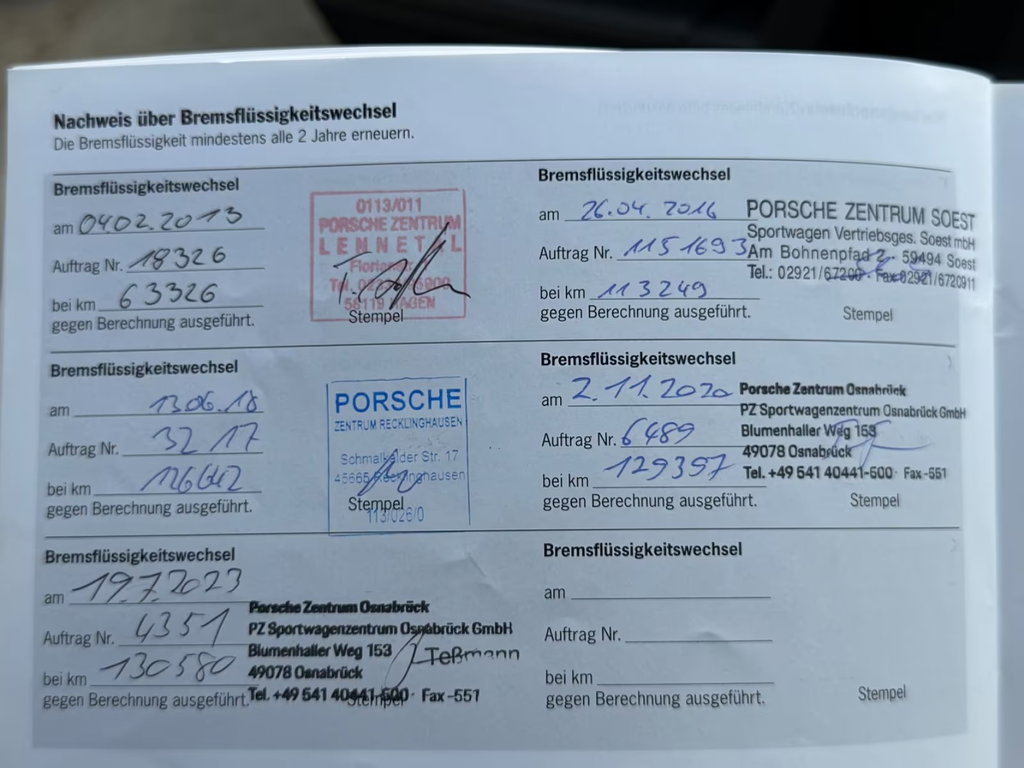 Nachweis über Bremsflüssigkeitswechsel
Die Bremsflüssigkeit mindestens alle 2 Jahre erneuern.
Bremsflüssigkeitswechsel
am 04.02.2013
Auftrag Nr. 18326
bei km 63326
gegen Berechnung ausgeführt.
0113/011
PORSCHE ZENTRUM
LENNETAL
58119 HAGEN
Stempel
Bremsflüssigkeitswechsel
am 26.04.2016
Auftrag Nr. 1151693
bei km 113249
gegen Berechnung ausgeführt.
PORSCHE ZENTRUM SOEST
Sportwagen Vertriebsges. Soest mbH
Am Bohnenpfad 2 · 59494 Soest
Tel.: 02921/67200 · Fax 02921/6720911
Stempel
Bremsflüssigkeitswechsel
am 13.06.18
Auftrag Nr. 3217
bei km
gegen Berechnung ausgeführt.
PORSCHE
ZENTRUM RECKLINGHAUSEN
Schmalkalder Str. 17
45665 Recklinghausen
Stempel
113/026/0
Bremsflüssigkeitswechsel
am 2.11.2020
Auftrag Nr. 6489
bei km 129397
gegen Berechnung ausgeführt.
Porsche Zentrum Osnabrück
PZ Sportwagenzentrum Osnabrück GmbH
Blumenhaller Weg 153
49078 Osnabrück
Tel. +49 541 40441-500 · Fax -551
Stempel
Bremsflüssigkeitswechsel
am 19.7.2023
Auftrag Nr. 4351
bei km 130580
gegen Berechnung ausgeführt.
Porsche Zentrum Osnabrück
PZ Sportwagenzentrum Osnabrück GmbH
Blumenhaller Weg 153
49078 Osnabrück
Tel. +49 541 40441-500 · Fax -551
Teßmann
Stempel
Bremsflüssigkeitswechsel
am
Auftrag Nr.
bei km
gegen Berechnung ausgeführt.
Stempel